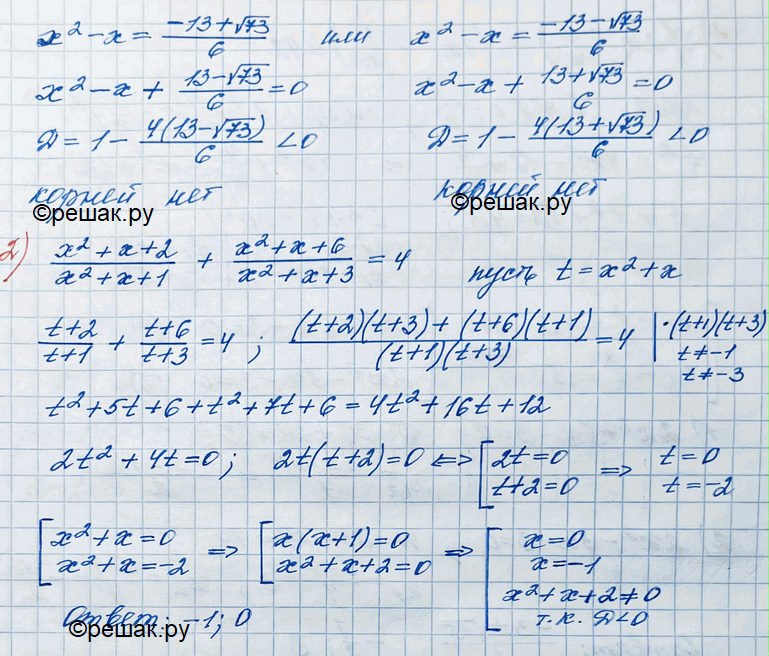 x² − x = (−13+√73)/6 или x² − x = (−13−√73)/6
x² − x + (13−√73)/6 = 0 x² − x + (13+√73)/6 = 0
Д = 1 − 4(13−√73)/6 < 0 Д = 1 − 4(13+√73)/6 < 0
корней нет корней нет
©решак.ру ©решак.ру
2) (x²+x+2)/(x²+x+1) + (x²+x+6)/(x²+x+3) = 4 пусть t = x²+x
(t+2)/(t+1) + (t+6)/(t+3) = 4 ; ((t+2)(t+3) + (t+6)(t+1))/((t+1)(t+3)) = 4 | ·(t+1)(t+3)
t ≠ −1
t ≠ −3
t² + 5t + 6 + t² + 7t + 6 = 4t² + 16t + 12
2t² + 4t = 0 ; 2t(t+2) = 0 <=> [ 2t = 0 => t = 0
t+2 = 0 t = −2
[ x² + x = 0 => [ x(x+1) = 0 => [ x = 0
x² + x = −2 x² + x + 2 = 0 x = −1
x² + x + 2 ≠ 0
Ответ: −1; 0 т.к. Д<0
©решак.ру